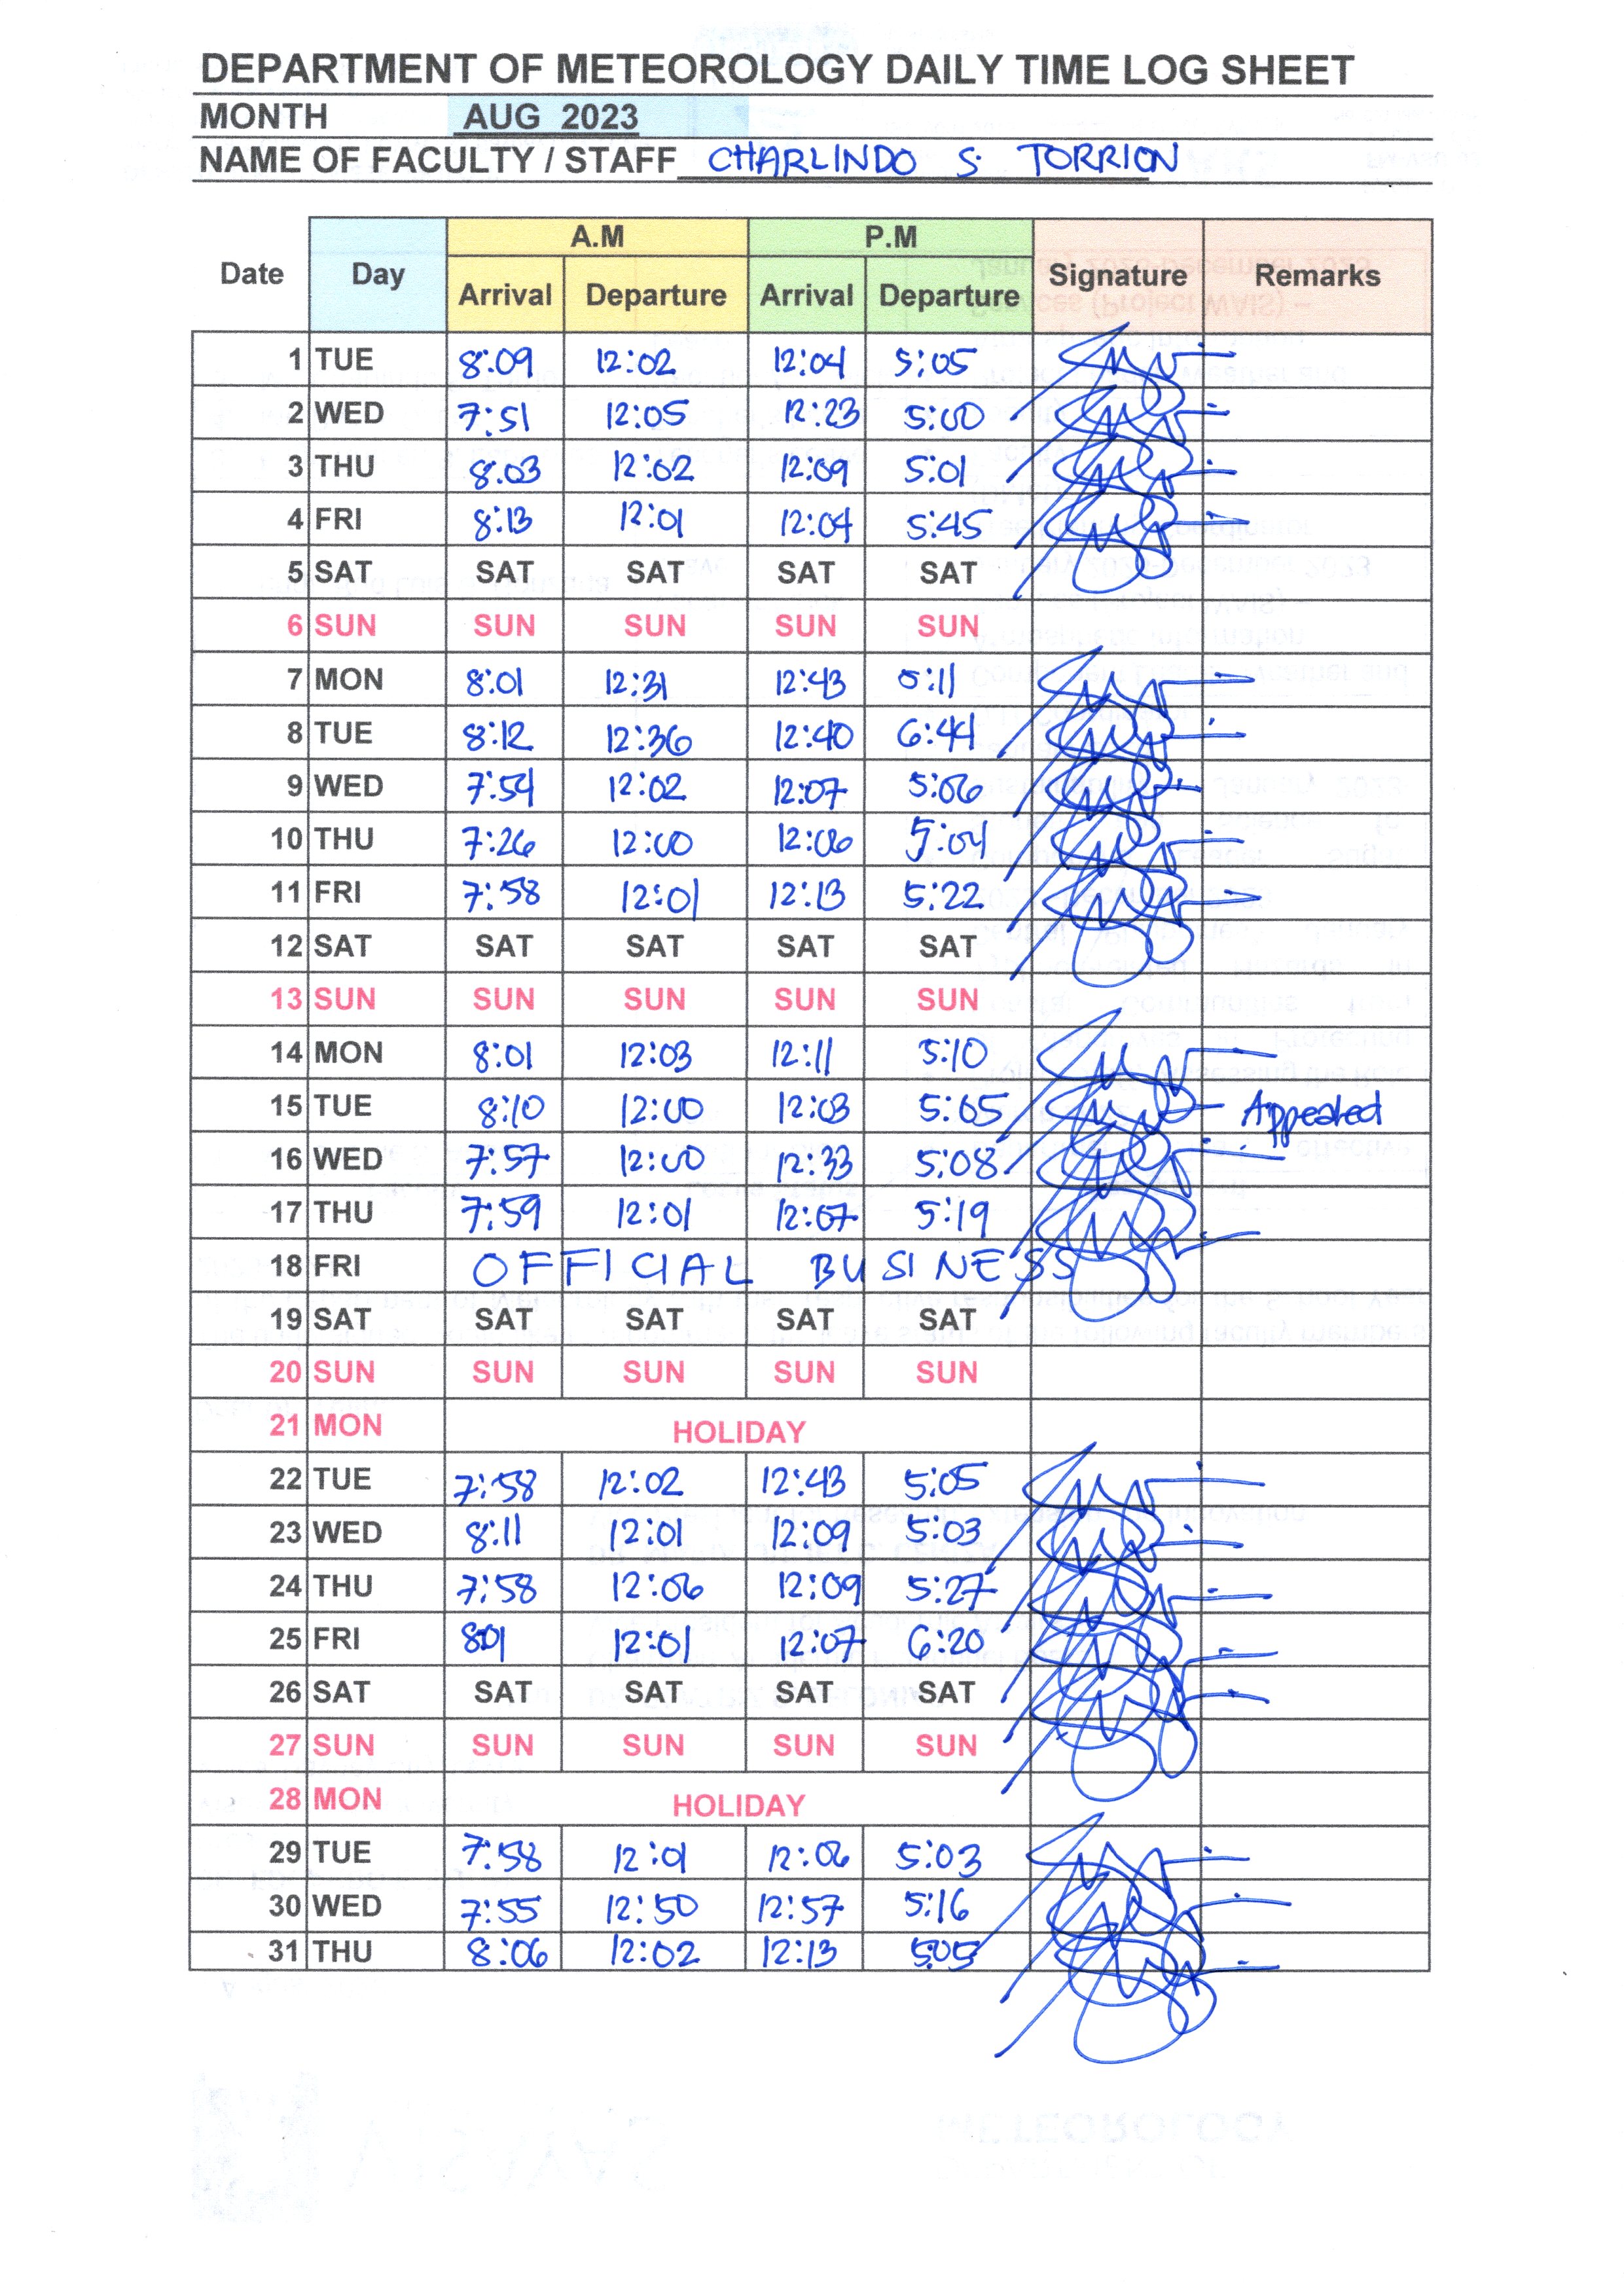 DEPARTMENT OF METEOROLOGY DAILY TIME LOG SHEET
MONTH AUG 2023
NAME OF FACULTY / STAFF CHARLINDO S. TORRION
Date Day A.M P.M Signature Remarks
Arrival Departure Arrival Departure
1 TUE 8:09 12:02 12:04 5:05
2 WED 7:51 12:05 12:23 5:00
3 THU 8:03 12:02 12:09 5:01
4 FRI 8:13 12:01 12:04 5:45
5 SAT SAT SAT SAT SAT
6 SUN SUN SUN SUN SUN
7 MON 8:01 12:31 12:43 5:11
8 TUE 8:12 12:36 12:40 6:44
9 WED 7:54 12:02 12:07 5:06
10 THU 7:26 12:00 12:06 5:04
11 FRI 7:58 12:01 12:13 5:22
12 SAT SAT SAT SAT SAT
13 SUN SUN SUN SUN SUN
14 MON 8:01 12:03 12:11 5:10
15 TUE 8:10 12:00 12:03 5:05 Appealed
16 WED 7:57 12:00 12:33 5:08
17 THU 7:59 12:01 12:07 5:19
18 FRI OFFICIAL BUSINESS
19 SAT SAT SAT SAT SAT
20 SUN SUN SUN SUN SUN
21 MON HOLIDAY
22 TUE 7:58 12:02 12:43 5:05
23 WED 8:11 12:01 12:09 5:03
24 THU 7:58 12:06 12:09 5:27
25 FRI 8:01 12:01 12:07 6:20
26 SAT SAT SAT SAT SAT
27 SUN SUN SUN SUN SUN
28 MON HOLIDAY
29 TUE 7:58 12:01 12:06 5:03
30 WED 7:55 12:50 12:57 5:16
31 THU 8:06 12:02 12:13 5:05